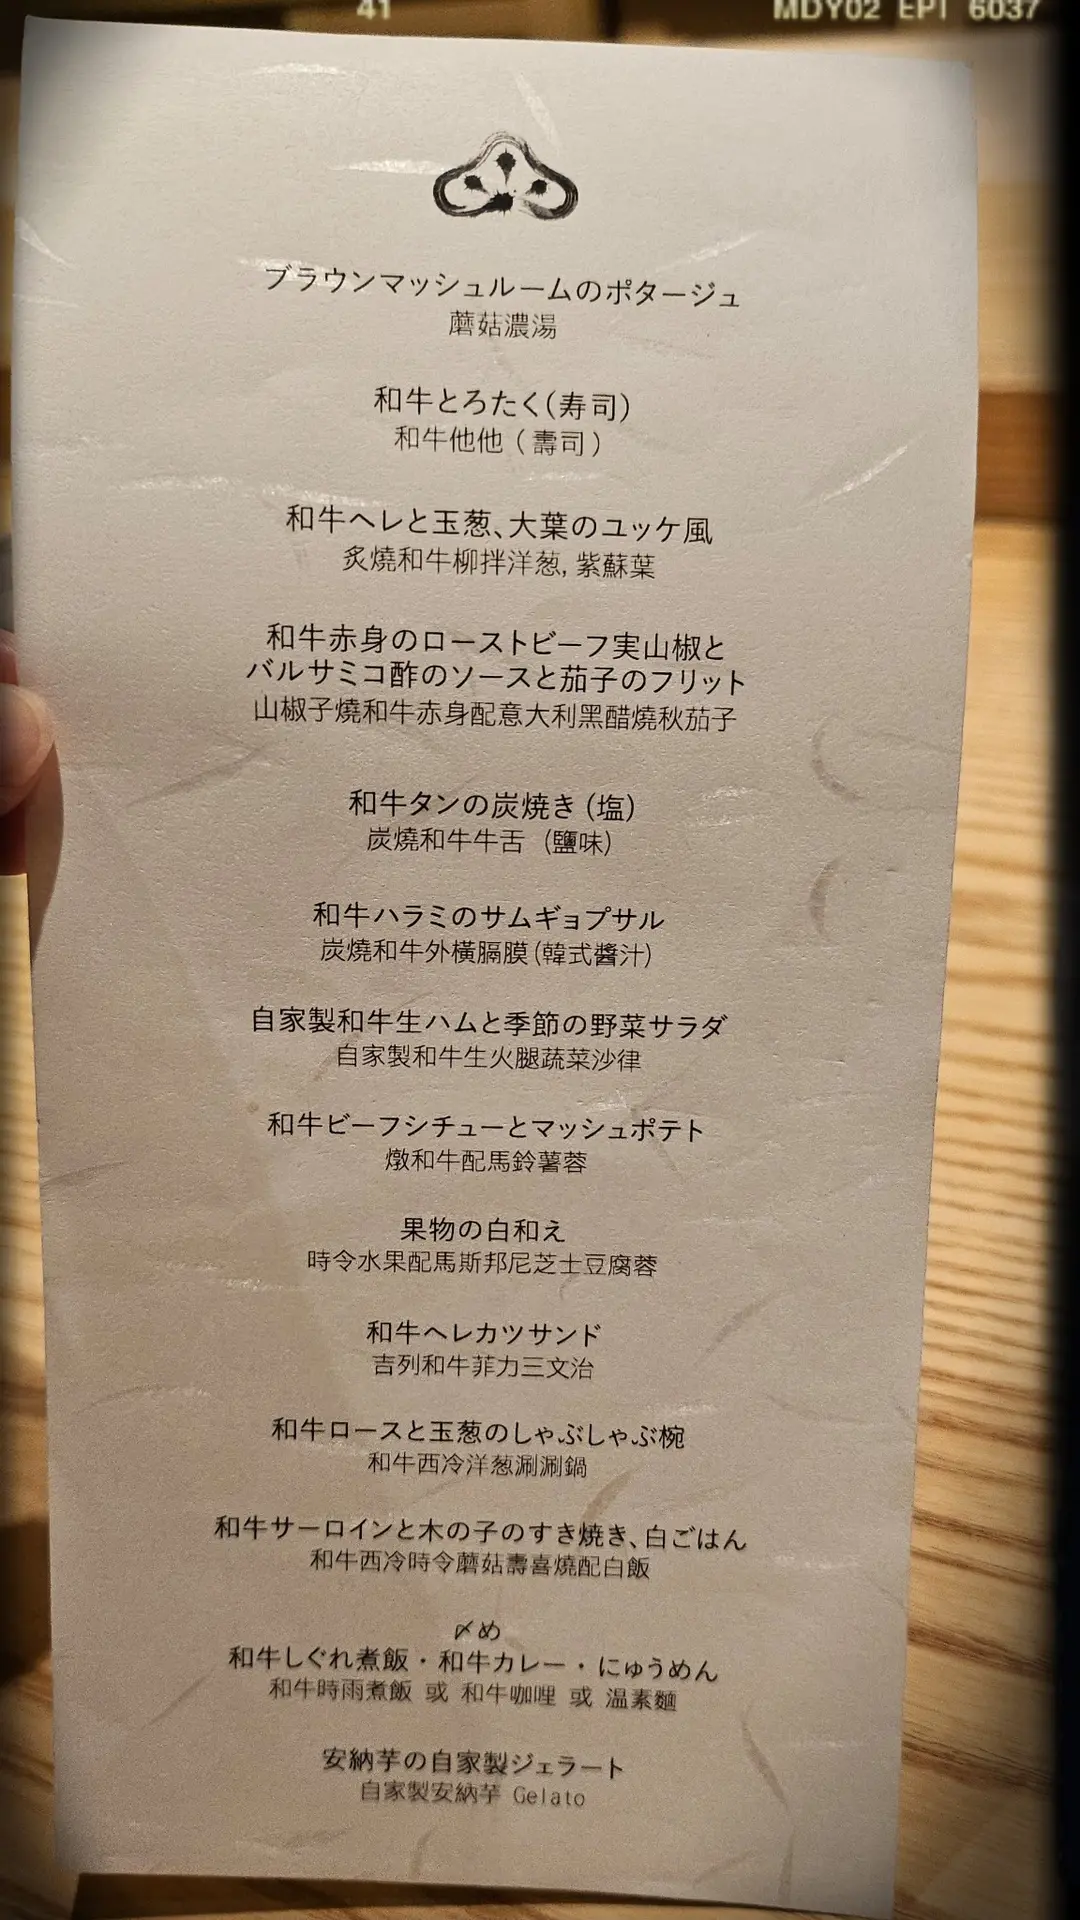 41
MDY02 EPI 6037
ブラウンマッシュルームのポタージュ
蘑菇濃湯
和牛とろたく(寿司)
和牛他他（壽司）
和牛ヘレと玉葱、大葉のユッケ風
炙燒和牛柳拌洋葱, 紫蘇葉
和牛赤身のローストビーフ実山椒と
バルサミコ酢のソースと茄子のフリット
山椒子燒和牛赤身配意大利黑醋燒秋茄子
和牛タンの炭焼き (塩)
炭燒和牛牛舌 (鹽味)
和牛ハラミのサムギョプサル
炭燒和牛外橫膈膜(韓式醬汁)
自家製和牛生ハムと季節の野菜サラダ
自家製和牛生火腿蔬菜沙律
和牛ビーフシチューとマッシュポテト
燉和牛配馬鈴薯蓉
果物の白和え
時令水果配馬斯邦尼芝士豆腐蓉
和牛ヘレカツサンド
吉列和牛菲力三文治
和牛ロースと玉葱のしゃぶしゃぶ椀
和牛西冷洋葱涮涮鍋
和牛サーロインと木の子のすき焼き、白ごはん
和牛西冷時令蘑菇壽喜燒配白飯
〆め
和牛しぐれ煮飯・和牛カレー・にゅうめん
和牛時雨煮飯 或 和牛咖哩 或 温素麵
安納芋の自家製ジェラート
自家製安納芋 Gelato